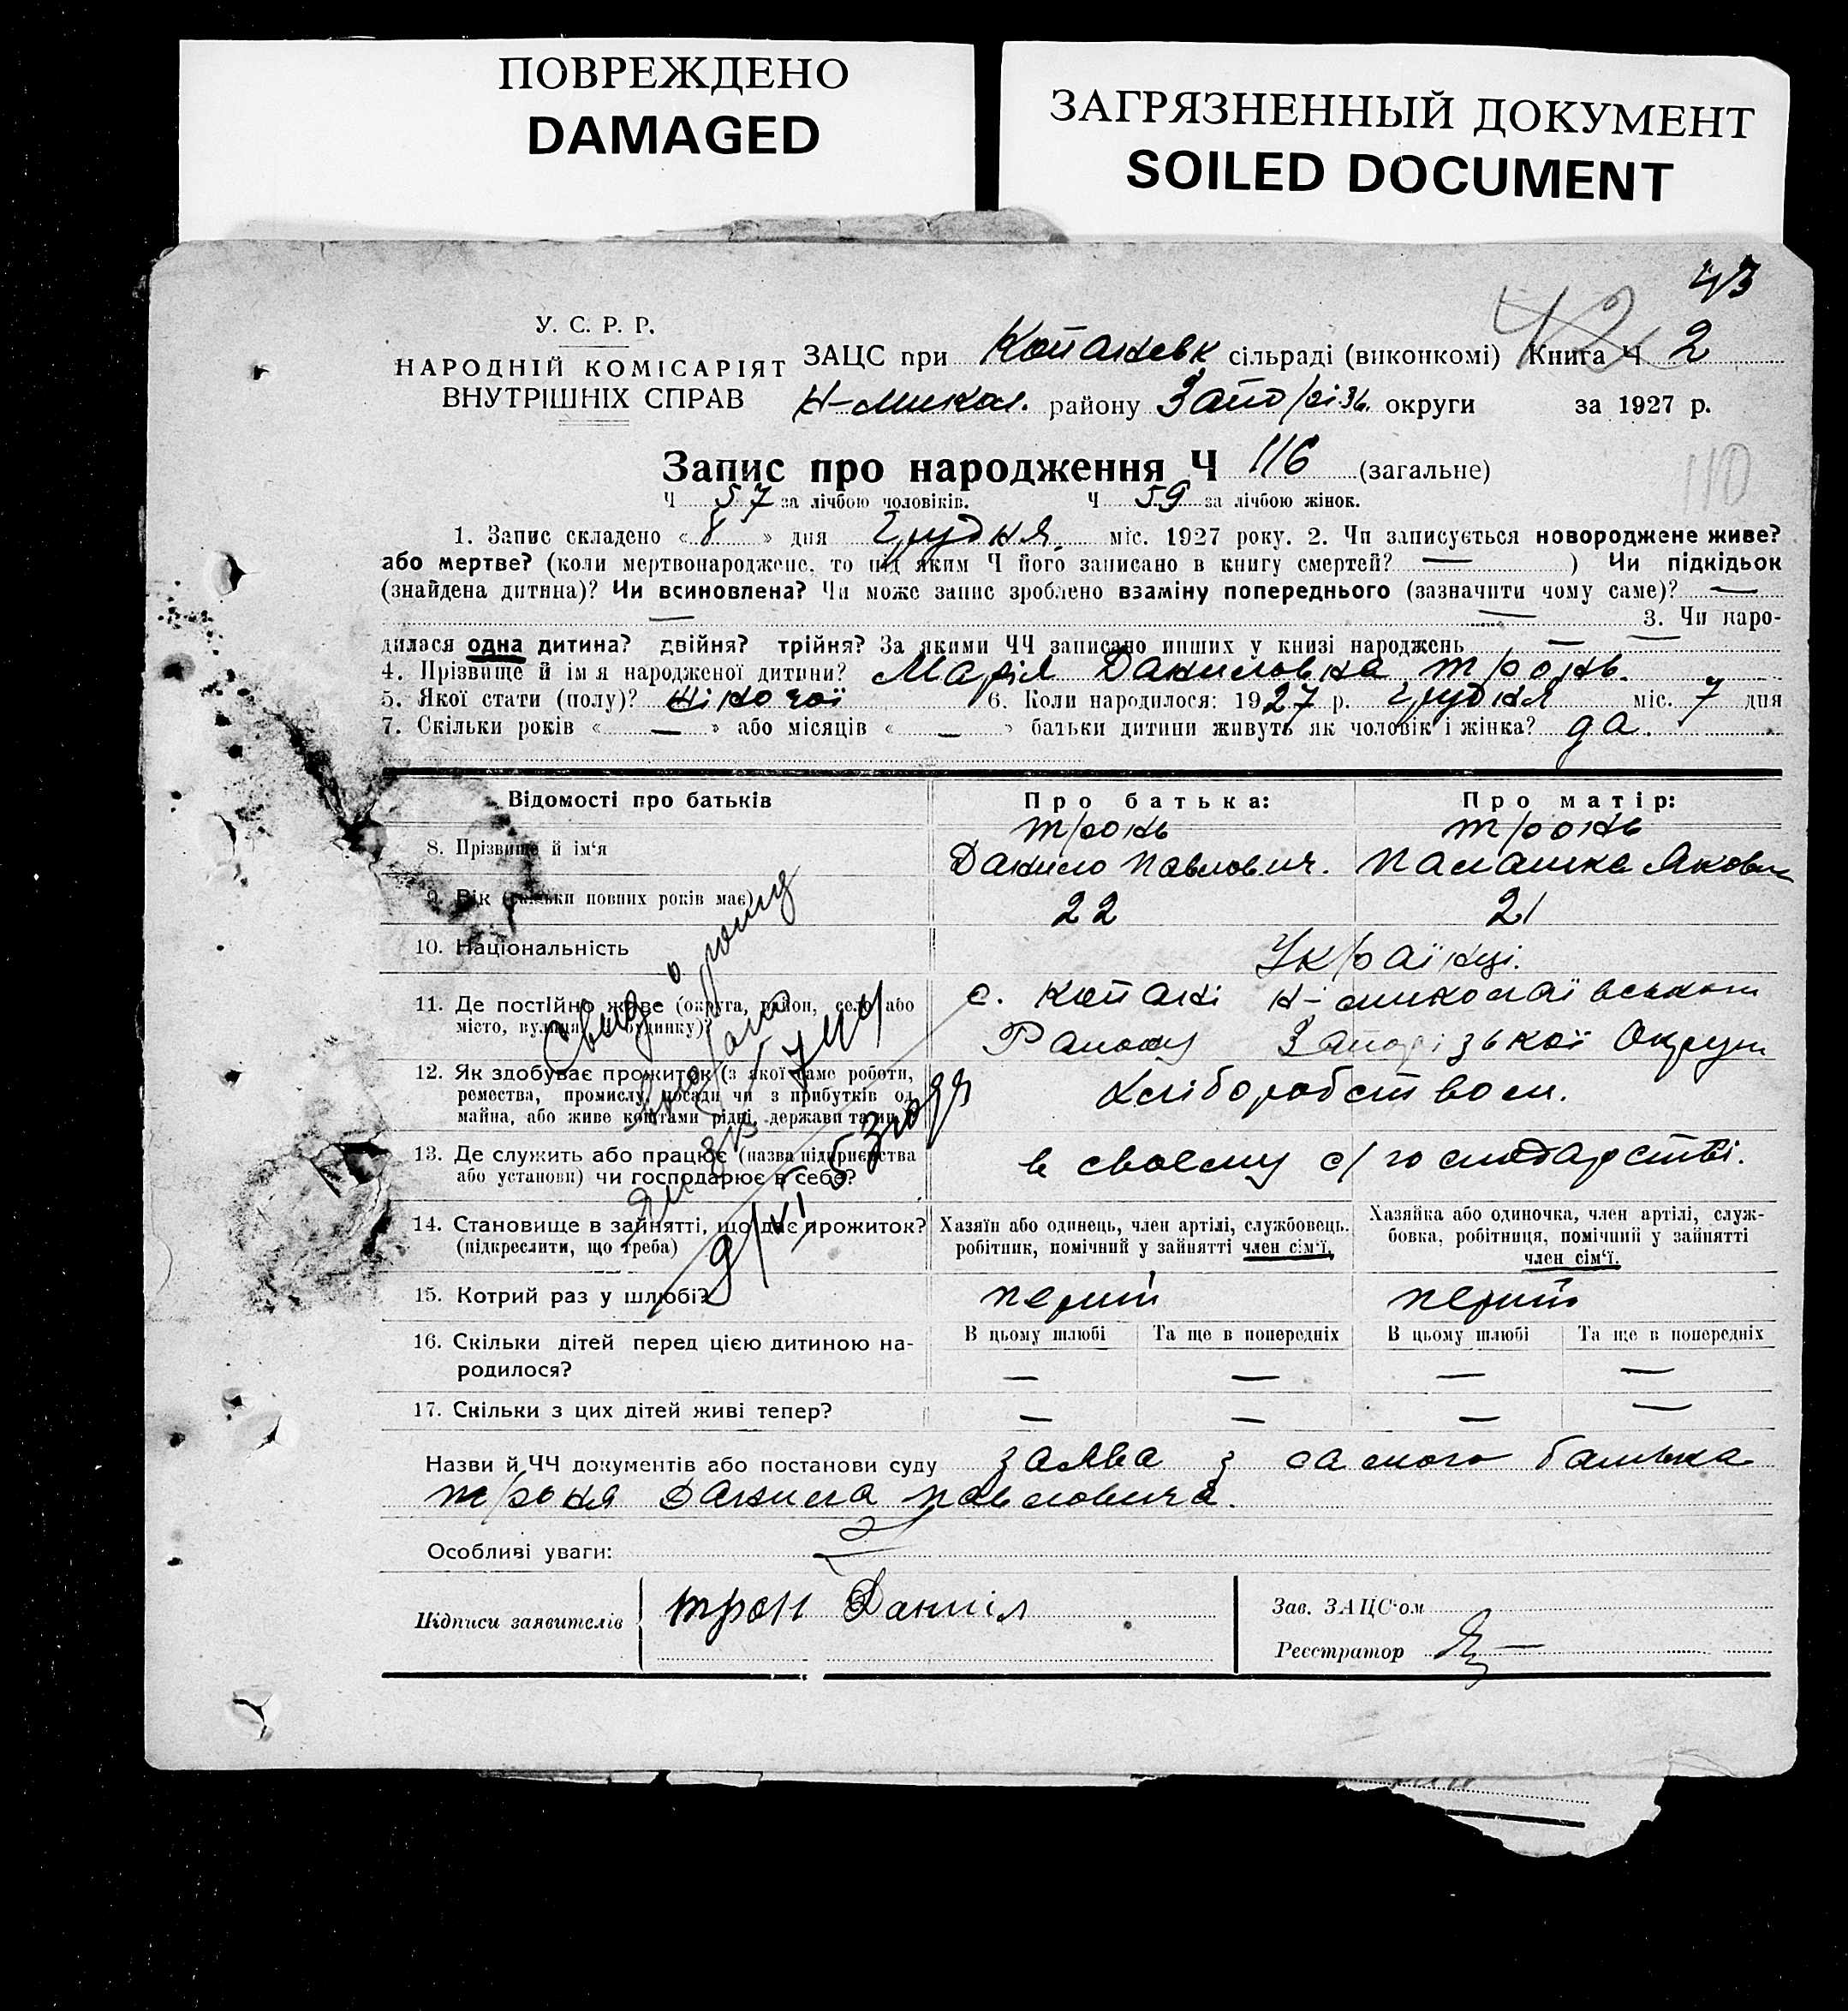 ПОВРЕЖДЕНО
DAMAGED
ЗАГРЯЗНЕННЫЙ ДОКУМЕНТ
SOILED DOCUMENT
43
42
У. С. Р. Р.
НАРОДНІЙ КОМІСАРІЯТ
ВНУТРІШНІХ СПРАВ
ЗАЦС при Копаневк сільраді (виконкомі) Книга Ч 2
Н-микол. району Запо/різ. округи за 1927 р.
Запис про народження Ч 116 (загальне)
110
Ч 57 за лічбою чоловіків. Ч 59 за лічбою жінок.
1. Запис складено « 8 » дня Грудня міс. 1927 року. 2. Чи записується новороджене живе?
або мертве? (коли мертвонароджене, то під яким Ч його записано в книгу смертей? — ) Чи підкідьок
(знайдена дитина)? Чи всиновлена? Чи може запис зроблено взаміну попереднього (зазначити чому саме)? —
— — 3. Чи наро-
дилася одна дитина? двійня? трійня? За якими ЧЧ записано инших у книзі народжень — —
4. Прізвище й ім я народженої дитини? Марія Даниловна Тронь.
5. Якої стати (полу)? жіночої 6. Коли народилося: 1927 р. грудня міс. 7 дня
7. Скільки років « — » або місяців « — » батьки дитини живуть як чоловік і жінка? да.
Відомості про батьків Про батька: Про матір:
8. Прізвище й ім'я Тронь Данило Павлович. Тронь Палашка Яковл
9. Вік (скільки повних років має) 22 21
10. Національність Українці.
11. Де постійно живе (округа, район, село або
місто, вулиця будинку)?
с. Копані Н-миколаївського
Району Запорізької Округи
12. Як здобуває прожиток (з якої саме роботи,
ремества, промислу, посади чи з прибутків од
майна, або живе коштами рідні, держави та ин.)
хліборобством.
13. Де служить або працює (назва підприємства
або установи) чи господарює в себе?
в своєму с/господарстві.
14. Становище в зайнятті, що дає прожиток?
(підкреслити, що треба)
Хазяїн або одинець, член артілі, службовець.
робітник, помічний у зайнятті член сім'ї.
Хазяйка або одиночка, член артілі, служ-
бовка, робітниця, помічний у зайнятті
член сім'ї.
15. Котрий раз у шлюбі? перший перший
16. Скільки дітей перед цією дитиною на-
родилося?
В цьому шлюбі Та ще в попередніх В цьому шлюбі Та ще в попередніх
— — — —
17. Скільки з цих дітей живі тепер? — — — —
Назви й ЧЧ документів або постанови суду заява з самого батька
Троня Данила Павловича.
Особливі уваги:
Підписи заявителів трон Даниіл
Зав. ЗАЦС'ом
Реєстратор